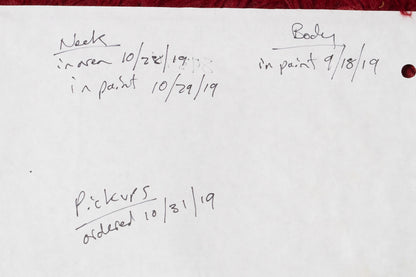 Neck
in oven 10/28/19
in paint 10/29/19
Body
in paint 9/18/19
Pickups
ordered 10/31/19